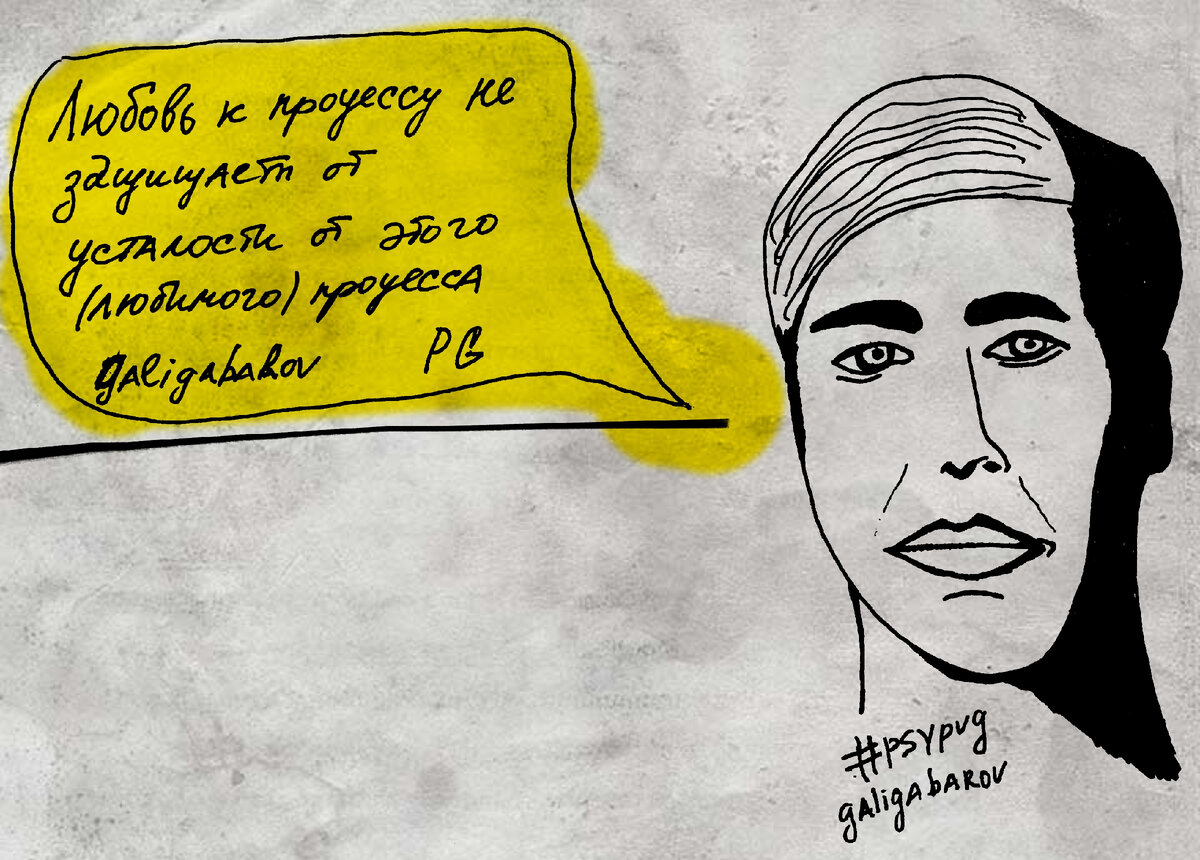 Любовь к процессу не
защищает от
усталости от этого
(любимого) процесса
galigabarov PG
#psypvg
galigabarov